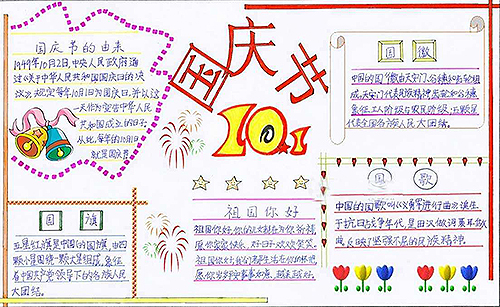 国庆节的由来
1949年10月2日,中央人民政府通
过《关于中华人民共和国国庆日的决
议》,规定每年10月1日为国庆日,并以这
一天作为宣告中华人民
共和国成立的日子,
从此,每年的10月1日
就是国庆节
国庆节
10.1
国徽
中国的国徽由天安门、
组成,天安门代表民族精神,
象征工人阶级与农民阶级,五颗星
代表全国各族人民大团结。
国旗
五星红旗是中国的国旗,由四
颗小星围绕一颗大星组成,象征
着中国共产党领导下的各族人民
大团结。
祖国你好
祖国你好,你的儿女都在为你祝福,
愿你
祖国你好,我们
愿你岁岁平安事事如意,越来越好。
国歌
中国的国歌叫《义勇军进行曲》,诞生
于抗日战争年代,是田汉作词聂耳作
曲,反映了坚强不屈的民族精神。